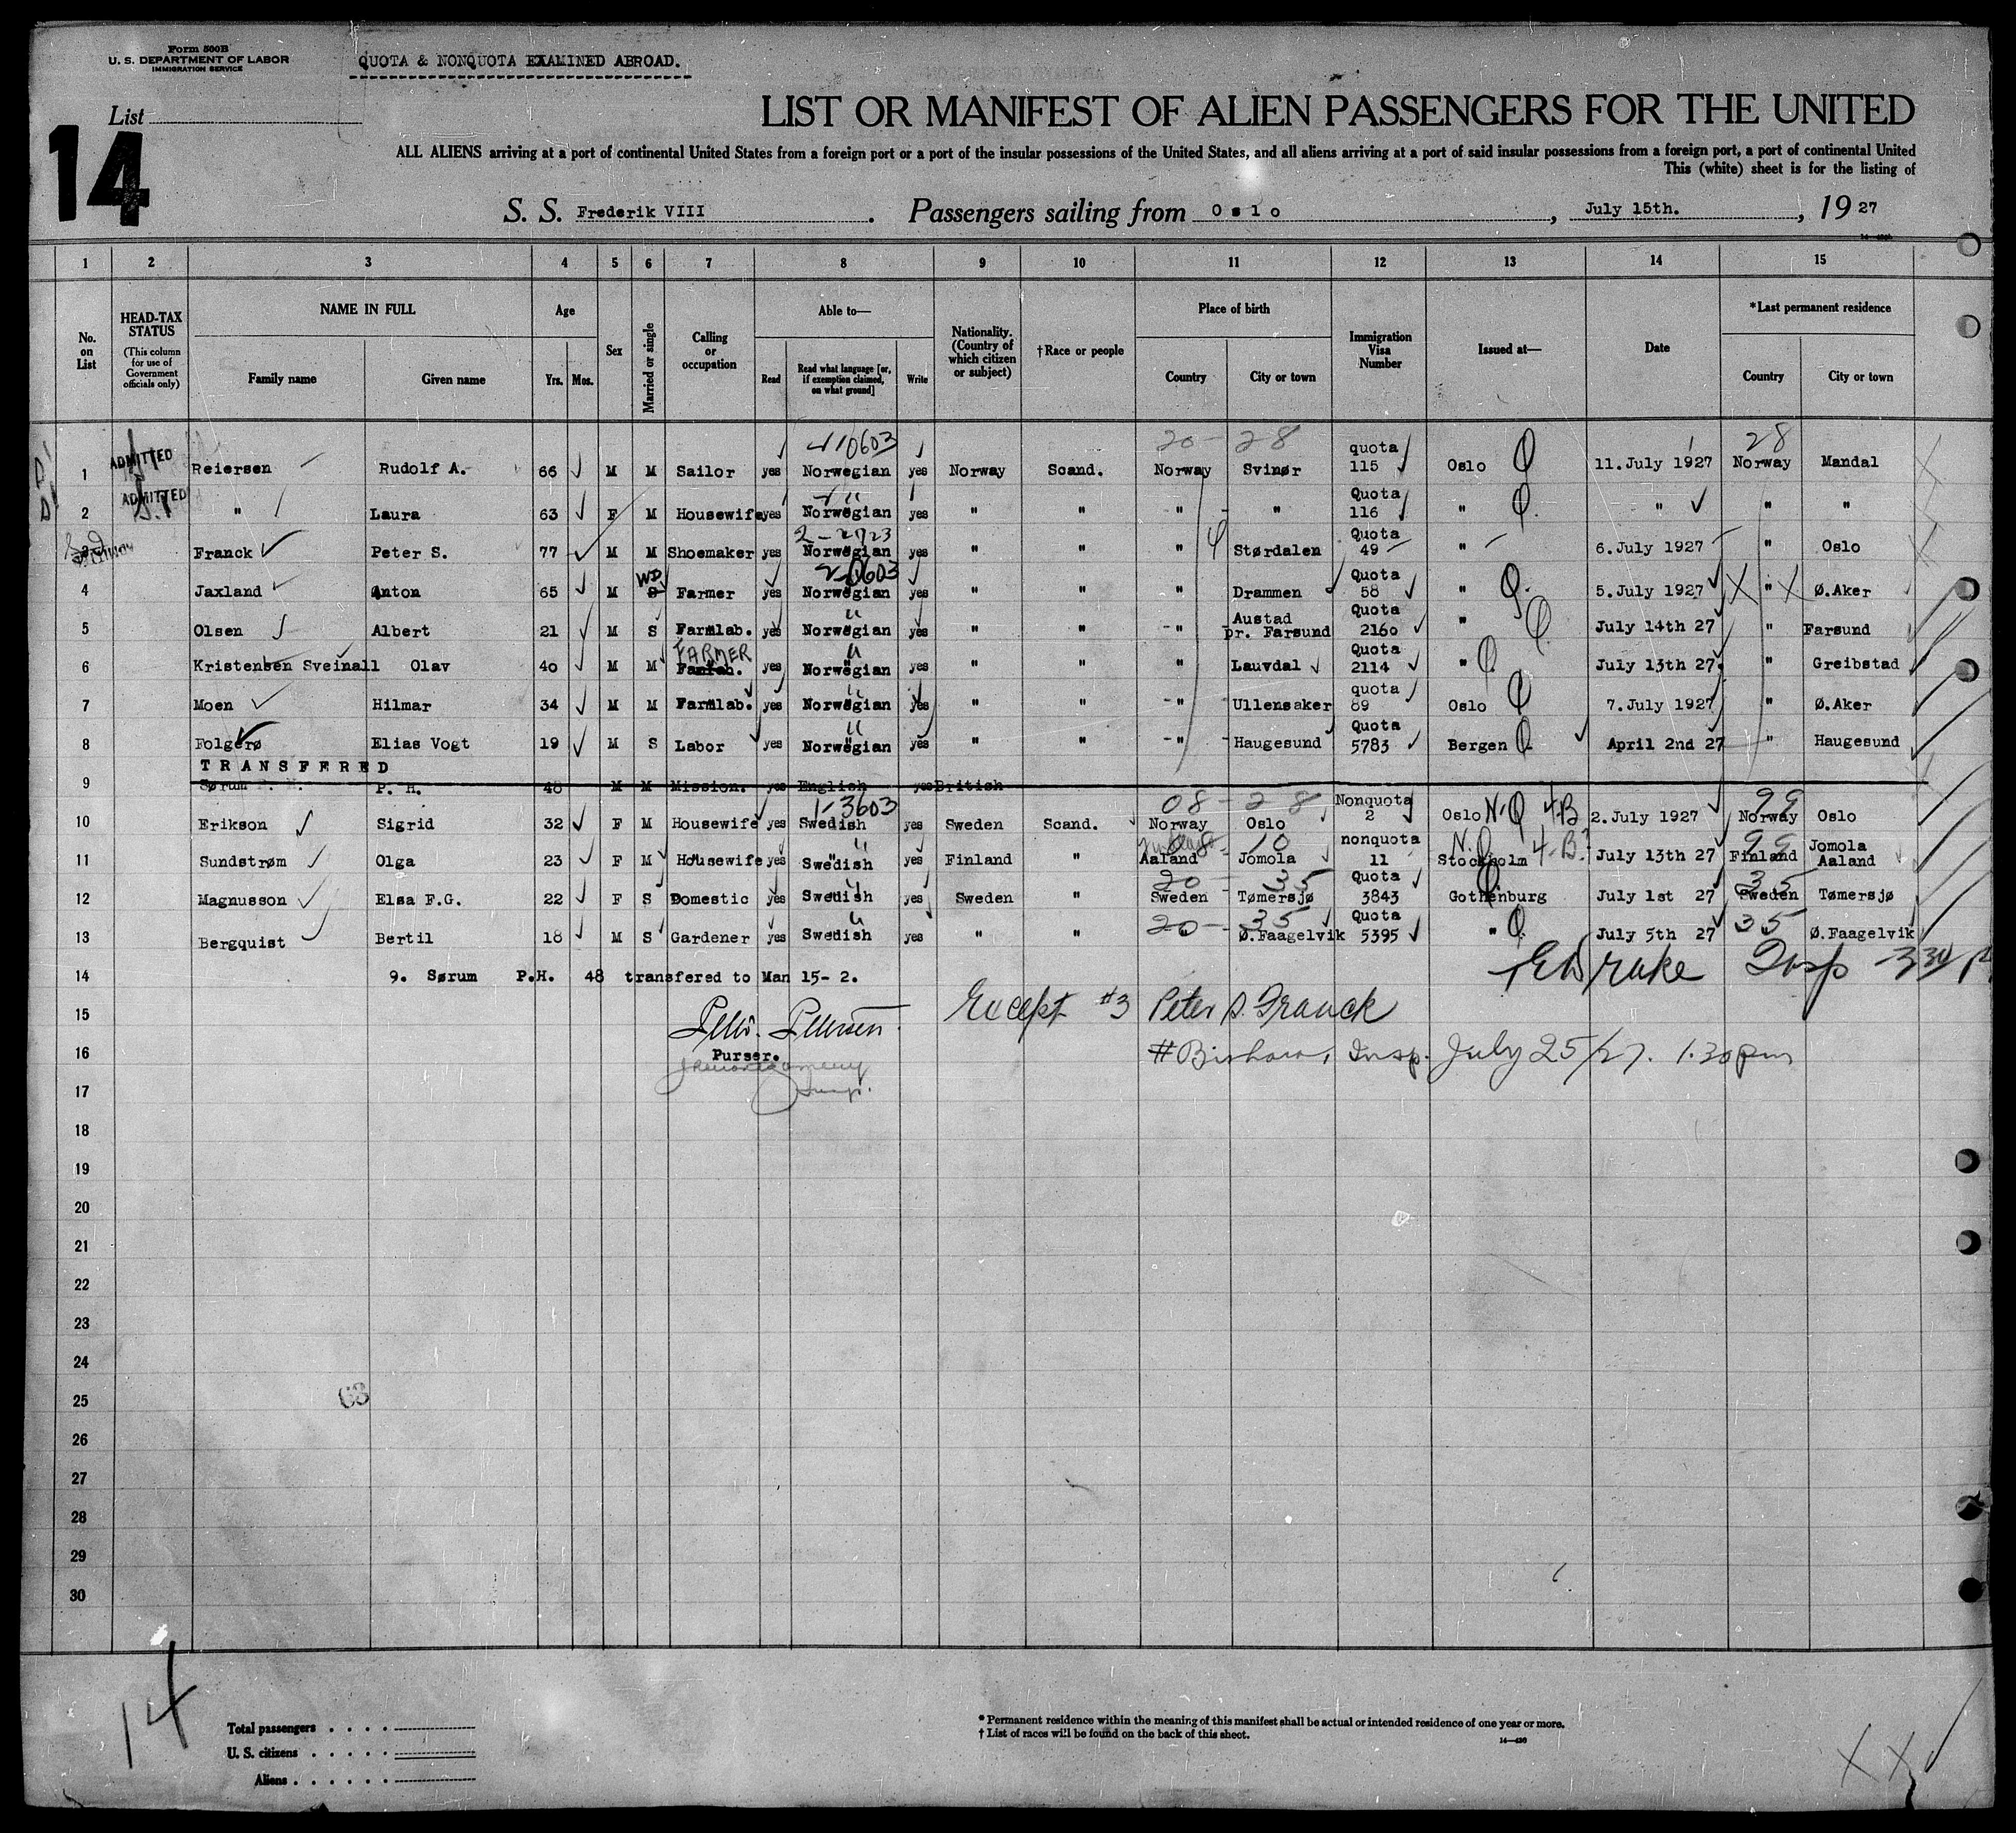 Form 500B
U. S. DEPARTMENT OF LABOR
IMMIGRATION SERVICE
QUOTA & NONQUOTA EXAMINED ABROAD.
List
14
LIST OR MANIFEST OF ALIEN PASSENGERS FOR THE UNITED
ALL ALIENS arriving at a port of continental United States from a foreign port or a port of the insular possessions of the United States, and all aliens arriving at a port of said insular possessions from a foreign port, a port of continental United
This (white) sheet is for the listing of
S. S. Frederik VIII . Passengers sailing from Oslo , July 15th. , 19 27
1 2 3 4 5 6 7 8 9 10 11 12 13 14 15
No. on List
HEAD-TAX STATUS
(This column for use of Government officials only)
NAME IN FULL
Family name Given name
Age
Yrs. Mos.
Sex
Married or single
Calling or occupation
Able to—
Read
Read what language [or, if exemption claimed, on what ground]
Write
Nationality. (Country of which citizen or subject)
†Race or people
Place of birth
Country City or town
Immigration Visa Number
Issued at—
Date
*Last permanent residence
Country City or town
410603 20 - 28 28
1 ADMITTED Reiersen Rudolf A. 66 M M Sailor yes Norwegian yes Norway Scand. Norway Svinør quota 115 Oslo Q 11. July 1927 Norway Mandal
2 ADMITTED " Laura 63 F M Housewife yes Norwegian yes " " " " Quota 116 " Q " " "
2-2723
3 Franck Peter S. 77 M M Shoemaker yes Norwegian yes " " " Størdalen Quota 49 " 6. July 1927 " Oslo
4 Jaxland Anton 65 M WD S Farmer yes Norwegian yes " " " Drammen Quota 58 " Q 5. July 1927 X " X Ø.Aker
5 Olsen Albert 21 M S Farmlab. yes Norwegian yes " " " Austad pr. Farsund Quota 2160 " Q July 14th 27 " Farsund
6 Kristensen Sveinall Olav 40 M M FARMER yes Norwegian yes " " " Lauvdal Quota 2114 " Q July 13th 27 " Greibstad
7 Moen Hilmar 34 M M Farmlab. yes Norwegian yes " " " Ullensaker quota 89 Oslo Q 7. July 1927 " Ø.Aker
8 Folgerø Elias Vogt 19 M S Labor yes Norwegian yes " " " Haugesund Quota 5783 Bergen Q April 2nd 27 " Haugesund
TRANSFERED
9 Sørum P. H. 48 M M Mission. yes English yes British
1-3603 08 - 28 99
10 Erikson Sigrid 32 F M Housewife yes Swedish yes Sweden Scand. Norway Oslo Nonquota 2 Oslo N.Q 4-B 2. July 1927 Norway Oslo
11 Sundstrøm Olga 23 F M Housewife yes Swedish yes Finland " Aaland Jomola nonquota 11 Stockholm N.Q 4-B. July 13th 27 99 Finland Jomola Aaland
12 Magnusson Elsa F.G. 22 F S Domestic yes Swedish yes Sweden " 20 - 35 Sweden Tømersjø Quota 3843 Gothenburg Q July 1st 27 35 Sweden Tømersjø
13 Bergquist Bertil 18 M S Gardener yes Swedish yes " " 20 - 35 Ø.Faagelvik Quota 5395 " Q July 5th 27 35 Ø.Faagelvik
14 9. Sørum P.H. 48 transfered to Man 15- 2.
Insp 330 P
15 Except #3 Peter S. Franck
16 Purser. Insp. July 25/27. 1.30 pm
17
18
19
20
21
22
23
24
25
63
26
27
28
29
30
14
Total passengers
U. S. citizens
Aliens
* Permanent residence within the meaning of this manifest shall be actual or intended residence of one year or more.
† List of races will be found on the back of this sheet.
14—430
X X